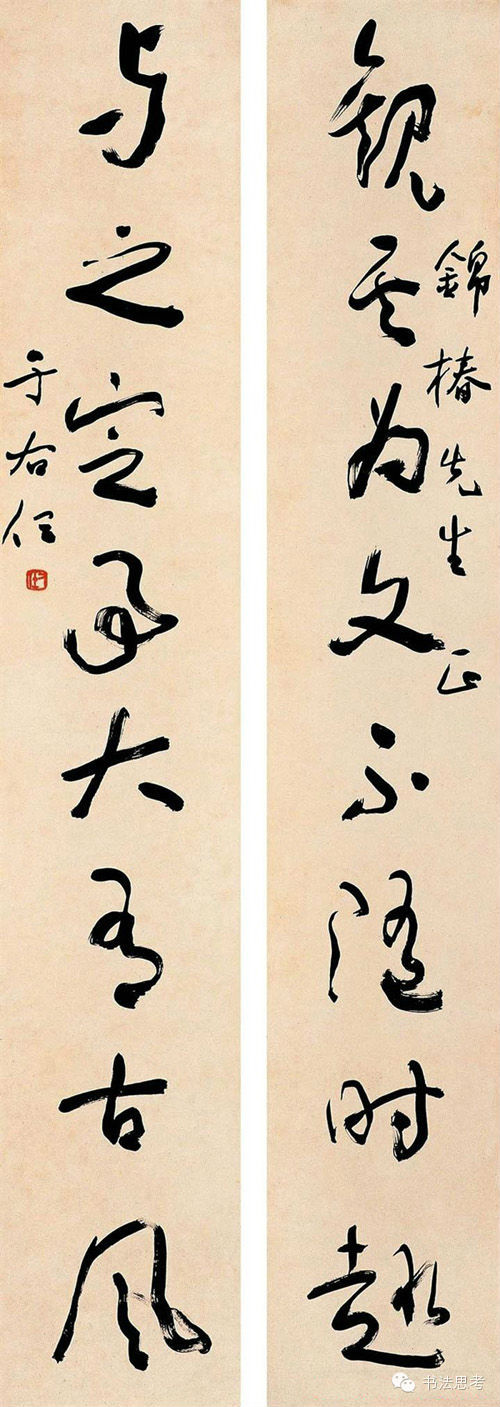 观其为文不随时趋
锦椿先生正
与之定事大有古风
于右任
书法思考